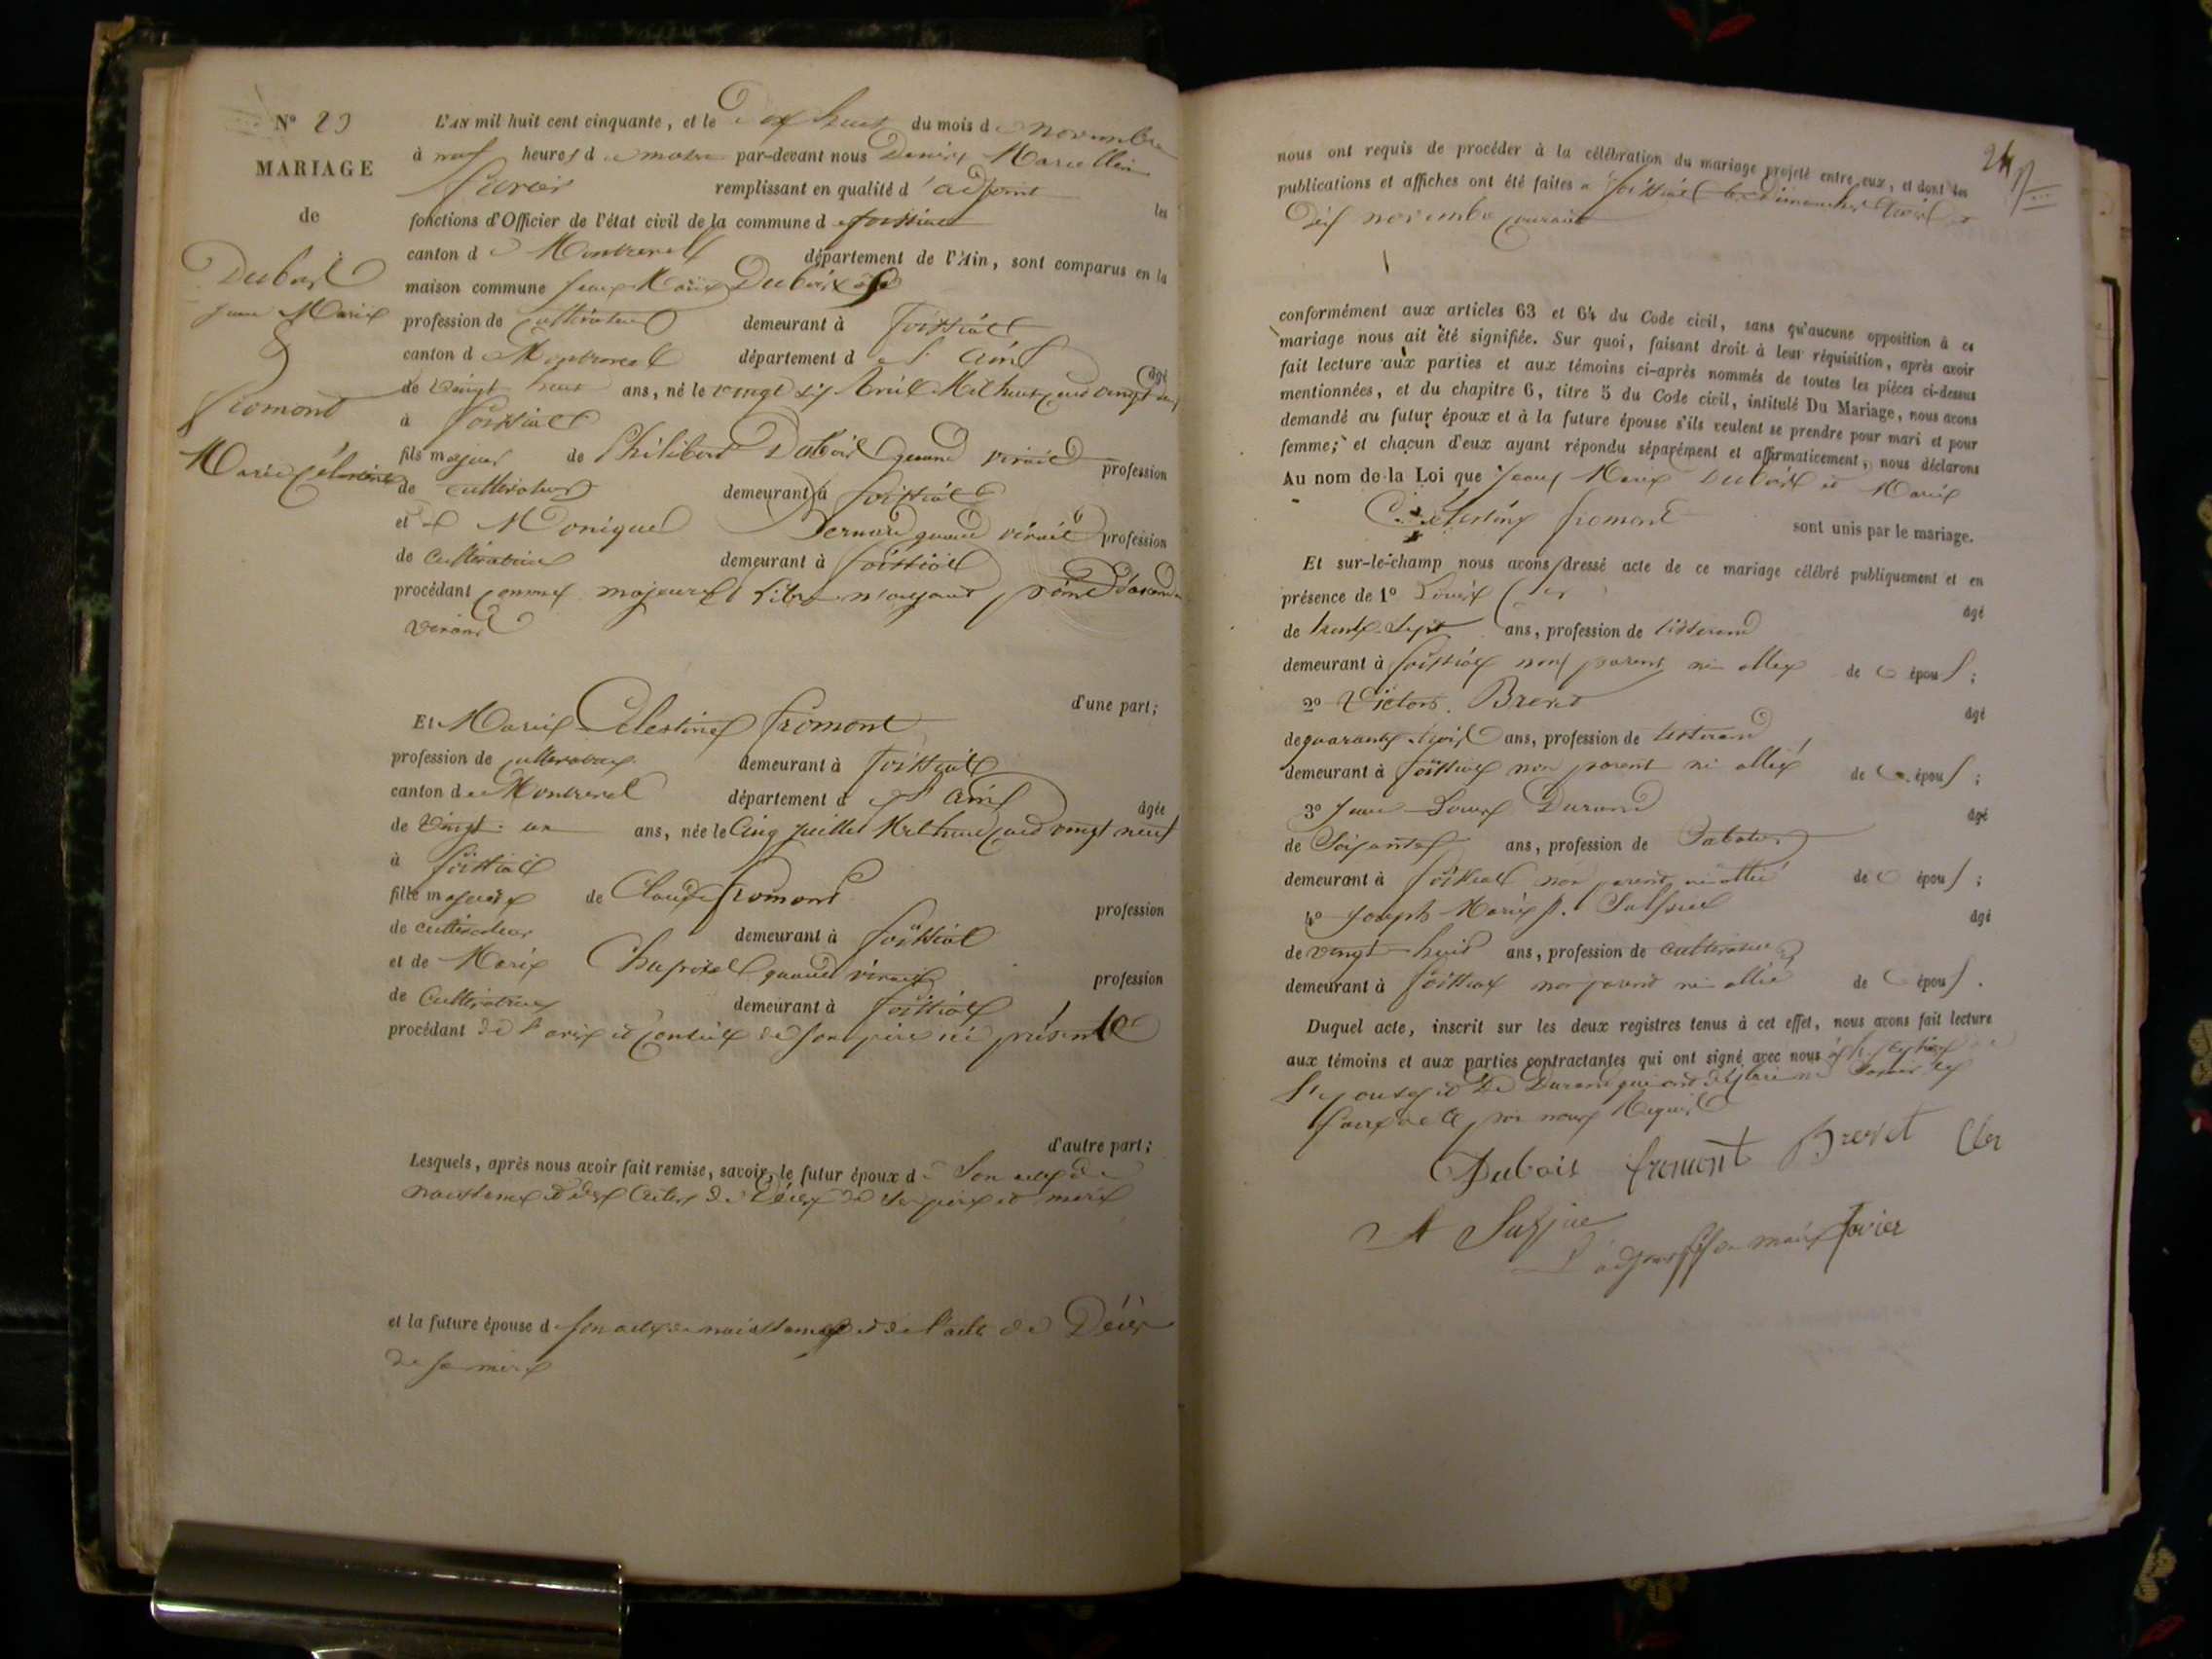 N° 23
MARIAGE
de
Dubois
Jean Marie
&
fromont
Marie Célestine
L'AN mil huit cent cinquante, et le Dix huit du mois de novembre
à neuf heures du matin par-devant nous Marcellin
remplissant en qualité d'adjoint les
fonctions d'Officier de l'état civil de la commune de foissiat
canton de Montrevel département de l'Ain, sont comparus en la
maison commune Jean Marie Dubois
profession de cultivateur demeurant à foissiat
canton de Montrevel département de l'Ain âgé
de vingt huit ans, né le vingt six Avril Mil huit cent vingt
à foissiat
fils majeur de Philibert Dubois quand vivait profession
de cultivateur demeurant à foissiat
et de Monique Bernard quand vivait profession
de cultivatrice demeurant à foissiat
procédant comme majeur et libre n'ayant point d'ascendans
vivans
d'une part;
Et Marie Celestine fromont
profession de cultivatrice demeurant à foissiat
canton de Montrevel département de l'Ain âgée
de vingt un ans, née le Cinq Juillet Mil huit cent vingt neuf
à foissiat
fille majeure de Claude fromont profession
de cultivateur demeurant à foissiat
et de Marie quand vivait profession
de Cultivatrice demeurant à foissiat
procédant de l'avis et conseil de son père ici présent
d'autre part;
Lesquels, après nous avoir fait remise, savoir, le futur époux de Son acte de
naissance et des Actes de Décès de Ses père et mère
et la future épouse de son acte de naissance et de l'acte de Décès
de sa mère
24
nous ont requis de procéder à la célébration du mariage projeté entre eux, et dont les
publications et affiches ont été faites à foissiat les dimanches trois et
Dix novembre courant
conformément aux articles 63 et 64 du Code civil, sans qu'aucune opposition à ce
mariage nous ait été signifiée. Sur quoi, faisant droit à leur réquisition, après avoir
fait lecture aux parties et aux témoins ci-après nommés de toutes les pièces ci-dessus
mentionnées, et du chapitre 6, titre 5 du Code civil, intitulé Du Mariage, nous avons
demandé au futur époux et à la future épouse s'ils veulent se prendre pour mari et pour
femme; et chacun d'eux ayant répondu séparément et affirmativement, nous déclarons
Au nom de la Loi que Jean Marie Dubois et Marie
Célestine fromont sont unis par le mariage.
Et sur-le-champ nous avons dressé acte de ce mariage célébré publiquement et en
présence de 1° Louis Cler âgé
de trente Sept ans, profession de tisserand
demeurant à foissiat non parent ni allié de époux;
2° Victor Brevet âgé
de quarante trois ans, profession de tisserand
demeurant à foissiat non parent ni allié de époux;
3° Jean Louis Durand âgé
de Soixante ans, profession de Sabotier
demeurant à foissiat non parent ni allié de époux;
4° Joseph Marie âgé
de vingt huit ans, profession de cultivateur
demeurant à foissiat non parent ni allié de époux.
Duquel acte, inscrit sur les deux registres tenus à cet effet, nous avons fait lecture
aux témoins et aux parties contractantes qui ont signé avec nous à l'exception de
l'épouse et de Durand qui ont déclaré ne savoir le
faire de ce par nous Requis
Dubois fromont Brevet Cler